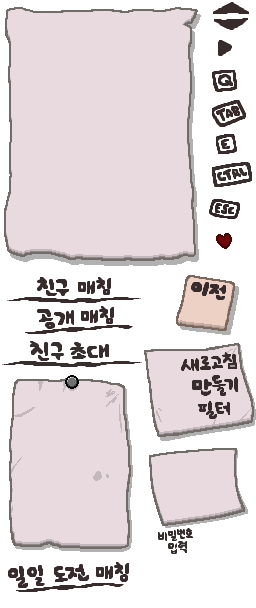 Q
TAB
E
CTRL
ESC
친구 매칭
공개 매칭
친구 초대
이전
새로고침
만들기
필터
비밀번호
입력
일일 도전 매칭